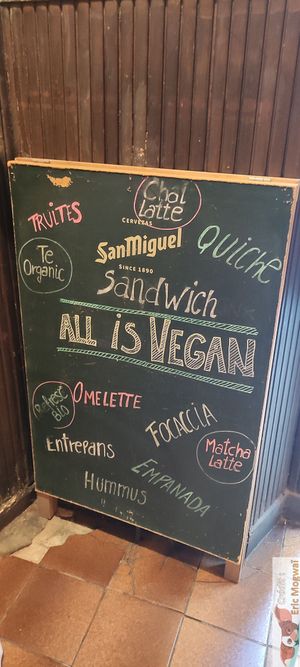 Chai
Latte
TRUITES
CERVEZAS
SanMiguel
SINCE 1890
QUICHE
Te
Organic
Sandwich
ALL iS VEGAN
OMELETTE
Refresc
Bio
FOCACCIA
Entrepans
Matcha
Latte
EMPANADA
Hummus
Eric Mogwai